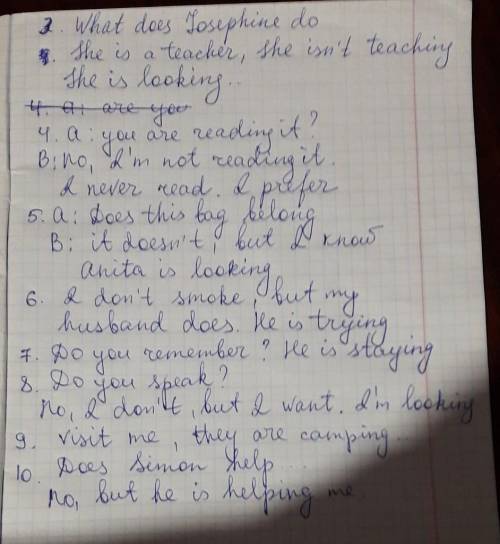 3. What does Josephine do
She is a teacher, she isn't teaching
She is looking..
4. A: are you
4. A: you are reading it?
B: No, I'm not reading it.
I never read. I prefer
5. A: Does this bag belong
B: it doesn't, but I know
Anita is looking
6. I don't smoke, but my
husband does. He is trying
7. Do you remember? He is staying
8. Do you speak?
No, I don't, but I want. I'm looking
9. visit me, they are camping...
10. Does Simon help....
No, but he is helping me.